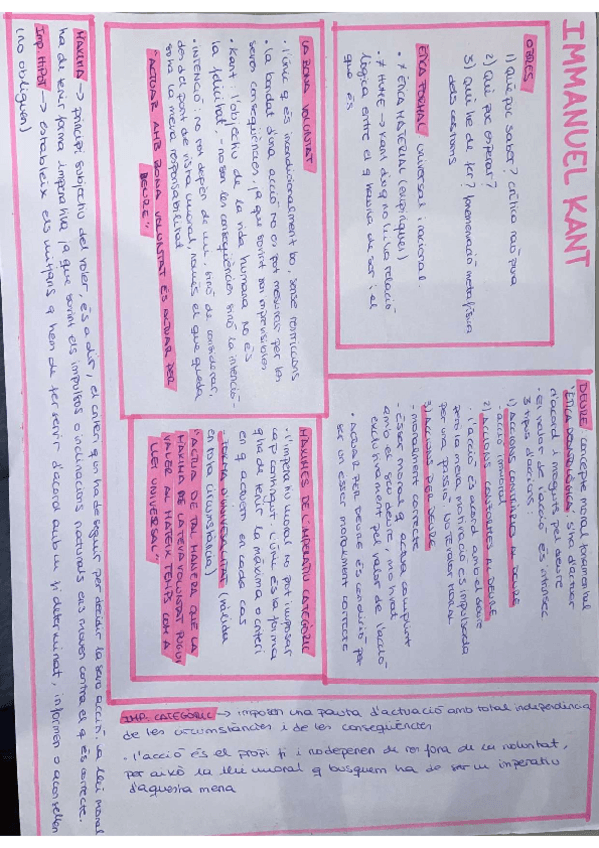 IMMANUEL KANT
OBRES
1) Què puc saber? crítica raó pura
2) Què puc esperar?
3) Què he de fer? fonamentació metafísica
dels costums
ÈTICA FORMAL universal i racional.
• ≠ ÈTICA MATERIAL (empírique)
• ≠ HUME → Kant diu q no hi ha relació
lògica entre el q hauria de ser i el
que és
LA BONA VOLUNTAT
• l'únic q és incondicionalment bo, sense restriccions
• la bondat d'una acció no es pot mesurar per les
seves conseqüències, ja que sovint son imprevisibles
• Kant: l'objectiu de la vida humana no és
la felicitat, - no son les conseqüències sinó la intenció -
• INTENCIÓ: no tot depèn de mi, sinó de considerar,
des del punt de vista moral, només el que queda
sota la meva responsabilitat
"ACTUAR AMB BONA VOLUNTAT ÉS ACTUAR PER
DEURE"
DEURE concepte moral fonamental
"ÈTICA DEONTOLÒGICA" s'ha d'actuar
d'acord i moguts pel deure
• el valor de l'acció és intrínsec
3 tipus d'accions:
1) ACCIONS CONTRÀRIES AL DEURE
- acció immoral
2) ACCIONS CONFORMES AL DEURE
• l'acció és d'acord amb el deure
però la meva motivació és impulsada
per una passió. NO TÉ VALOR MORAL
3) ACCIONS PER DEURE
- moralment correcte
- ésser moral q actua complint
amb el seu deure, motivat
exclusivament pel valor de l'acció
• ACTUAR PER DEURE és condició per
ser un ésser moralment correcte
MÀXIMES DE L'IMPERATIU CATEGÒRIC
• l'imperatiu moral no pot imposar
cap contingut. L'únic és la forma
q ha de tenir la màxima o criteri
en q actuem en cada cas
- FORMA D'UNIVERSALITAT (vàlida
en tota circumstància)
"ACTUA DE TAL MANERA QUE LA
MÀXIMA DE LA TEVA VOLUNTAT PUGUI
VALER AL MATEIX TEMPS COM A
LLEI UNIVERSAL"
MÀXIMA → principi subjectiu del voler, és a dir, el criteri q un ha de seguir per decidir la seva acció. La llei moral
ha de tenir forma imperativa ja que sovint els impulsos o inclinacions naturals ens mouen contra el q és correcte.
Imp. HIPOT → estableix els mitjans q hem de fer servir d'acord amb un fi determinat, informen o aconsellen
(no obliguen)
IMP. CATEGÒRIC → imposen una pauta d'actuació amb total independència
de les circumstàncies i de les conseqüències
• l'acció és el propi fi i no depenen de res fora de la voluntat,
per això la llei moral q busquem ha de ser un imperatiu
d'aquesta mena